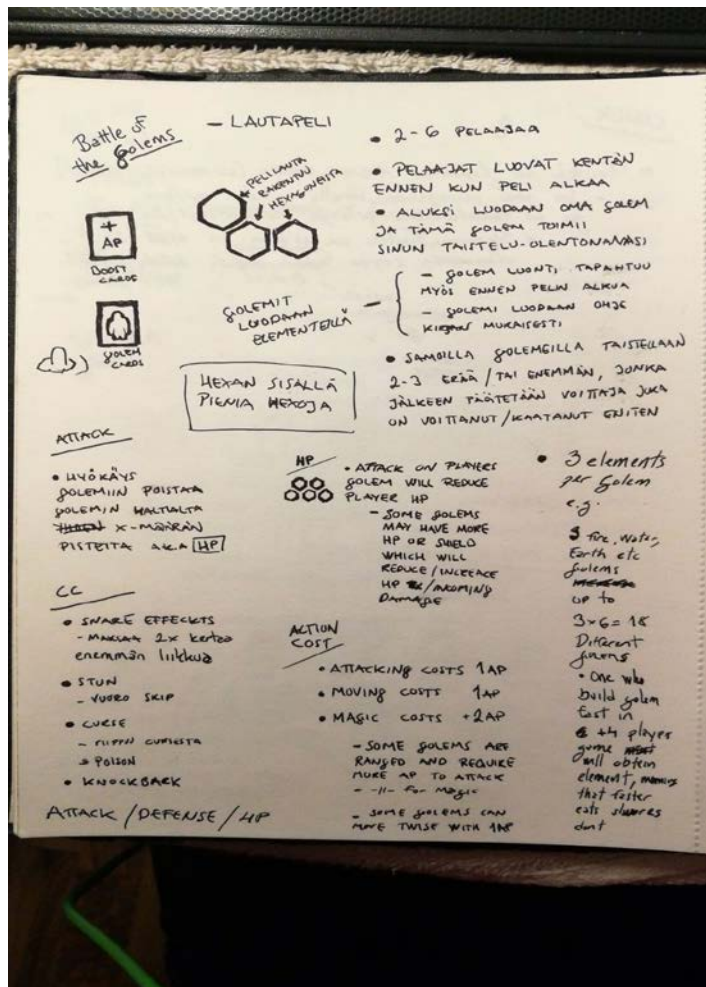 Battle of
the golems
- LAUTAPELI
PELILAUTA
RAKENTUU
HEXAGONEISTA
+
AP
BOOST
CARDS
GOLEM
CARDS
GOLEMIT
LUODAAN
ELEMENTEILLÄ
HEXAN SISÄLLÄ
PIENIA HEXOJA
• 2-6 PELAAJAA
• PELAAJAT LUOVAT KENTÄN
ENNEN KUN PELI ALKAA
• ALUKSI LUODAAN OMA GOLEM
JA TÄMÄ GOLEM TOIMII
SINUN TAISTELU-OLENTONANASI
- GOLEM LUONTI TAPAHTUU
MYÖS ENNEN PELIN ALKUA
- GOLEMI LUODAAN OHJE
KIRJAN MUKAISESTI
• SAMOILLA GOLEMEILLA TAISTELLAAN
2-3 ERÄÄ/TAI ENEMMÄN, JONKA
JÄLKEEN PÄÄTETÄÄN VOITTAJA JOKA
ON VOITTANUT/KAATANUT ENITEN
ATTACK
• HYÖKÄYS
GOLEMIIN POISTAA
GOLEMIN HALTIALTA
X-MÄÄRÄN
PISTEITÄ A.K.A HP
CC
• SNARE EFFECKTS
- MAKSAA 2x kertaa
enemmän liikkua
• STUN
- VUORO SKIP
• CURSE
CURSESTA
POISON
• KNOCKBACK
ATTACK/DEFENSE/HP
HP
• ATTACK ON PLAYERS
GOLEM WILL REDUCE
PLAYER HP
- SOME GOLEMS
MAY HAVE MORE
HP OR SHIELD
WHICH WILL
REDUCE/INCREACE
HP /INCOMING
DAMAGE
ACTION
COST
• ATTACKING COSTS 1AP
• MOVING COSTS 1AP
• MAGIC COSTS +2AP
- SOME GOLEMS ARE
RANGED AND REQUIRE
MORE AP TO ATTACK
- -11- For Magic
- SOME GOLEMS CAN
MOVE TWISE WITH 1AP
• 3 elements
per Golem
e.g.
3 fire, Water,
Earth etc
golems
up to
3x6= 18
Different
golems
• One who
build golem
fast in
+4 player
game
will obtein
element,
that faster
cats
dont